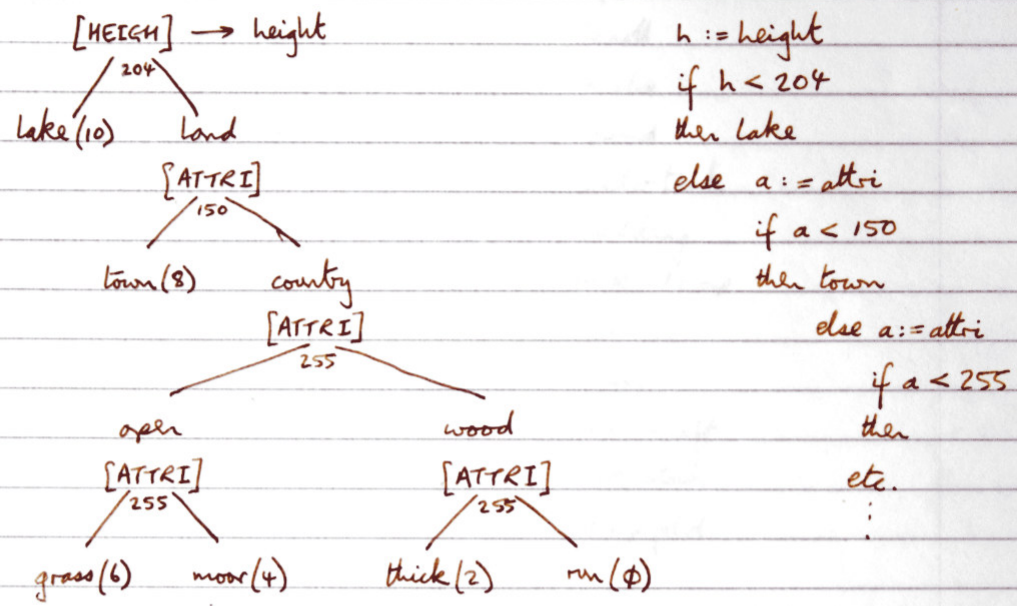 [HEIGH] → height
204
lake (10) land
[ATTRI]
150
town (8) country
[ATTRI]
255
open wood
[ATTRI] [ATTRI]
255 255
grass (6) moor (4) thick (2) run (ϕ)
h := height
if h < 204
then lake
else a := attri
if a < 150
then town
else a := attri
if a < 255
then
etc.
⋮